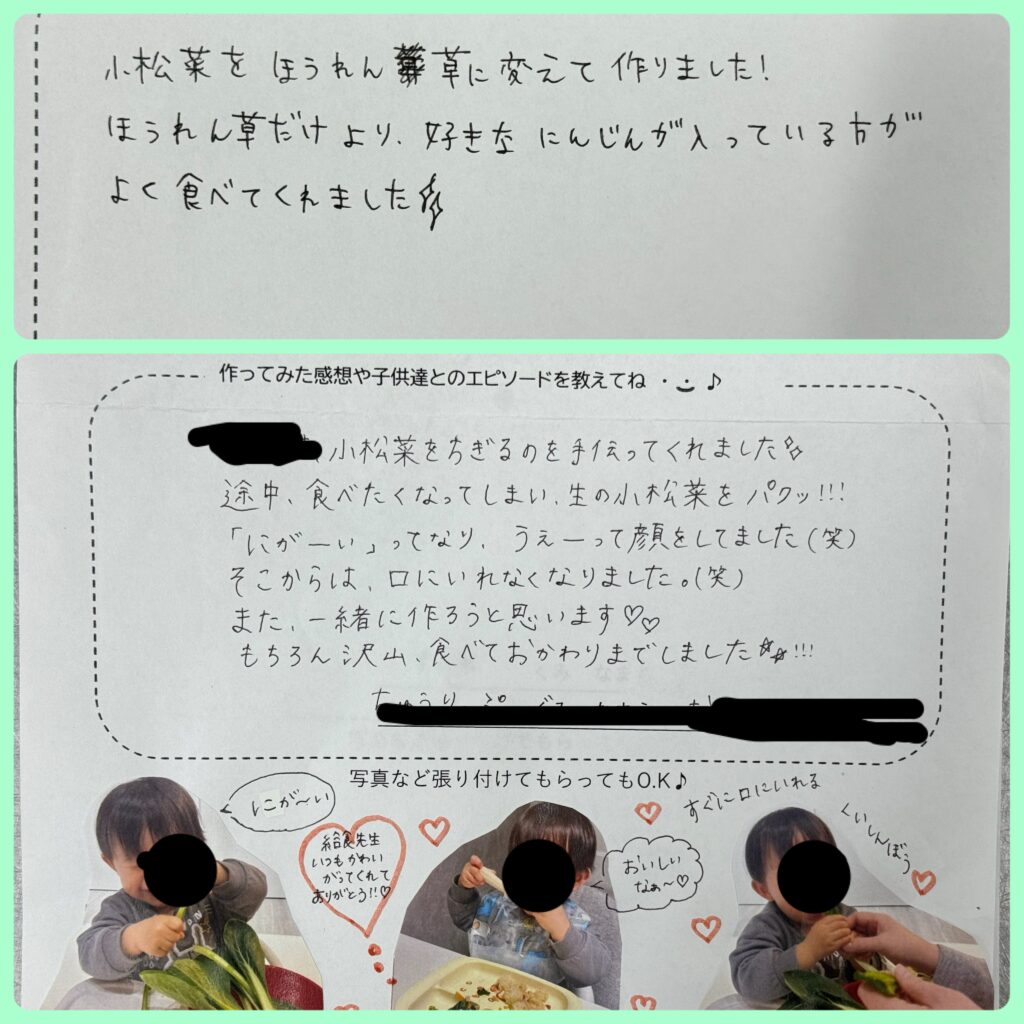 小松菜を ほうれん草に変えて作りました!
ほうれん草だけより、好きな にんじんが入っている方が
よく食べてくれました
作ってみた感想や子供達とのエピソードを教えてね ♪
小松菜をちぎるのを手伝ってくれました
途中、食べたくなってしまい、生の小松菜を パクッ!!!
「にがーい」ってなり、うぇーって顔をしてました(笑)
そこからは、口にいれなくなりました。(笑)
また、一緒に作ろうと思います♡♡
もちろん沢山、食べておかわりまでしました☆☆!!!
写真など張り付けてもらってもO.K♪
にが～い
給食先生
いつもかわい
がってくれて
ありがとう!!♡
おいしい
なぁ～♡
すぐに口にいれる
くいしんぼう